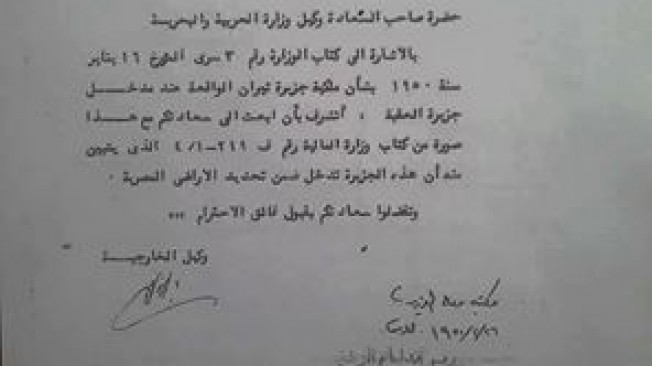 حضرة صاحب السعادة وكيل وزارة الحربية والبحرية
بالاشارة الى كتاب الوزارة رقم ٣ سرى المؤرخ ١٦ يناير
سنة ١٩٥٠ بشأن ملكية جزيرة تيران الواقعة عند مدخل
جزيرة العقبة ، أتشرف بأن ابعث الى سعادتكم مع هذا
صورة من كتاب وزارة المالية رقم ف ٢٤٩-٤/١ الذى يتبين
منه أن هذه الجزيرة تدخل ضمن تحديد الاراضى المصرية ٠
وتفضلوا سعادتكم بقبول فائق الاحترام ٠٠٠
وكيل الخارجية